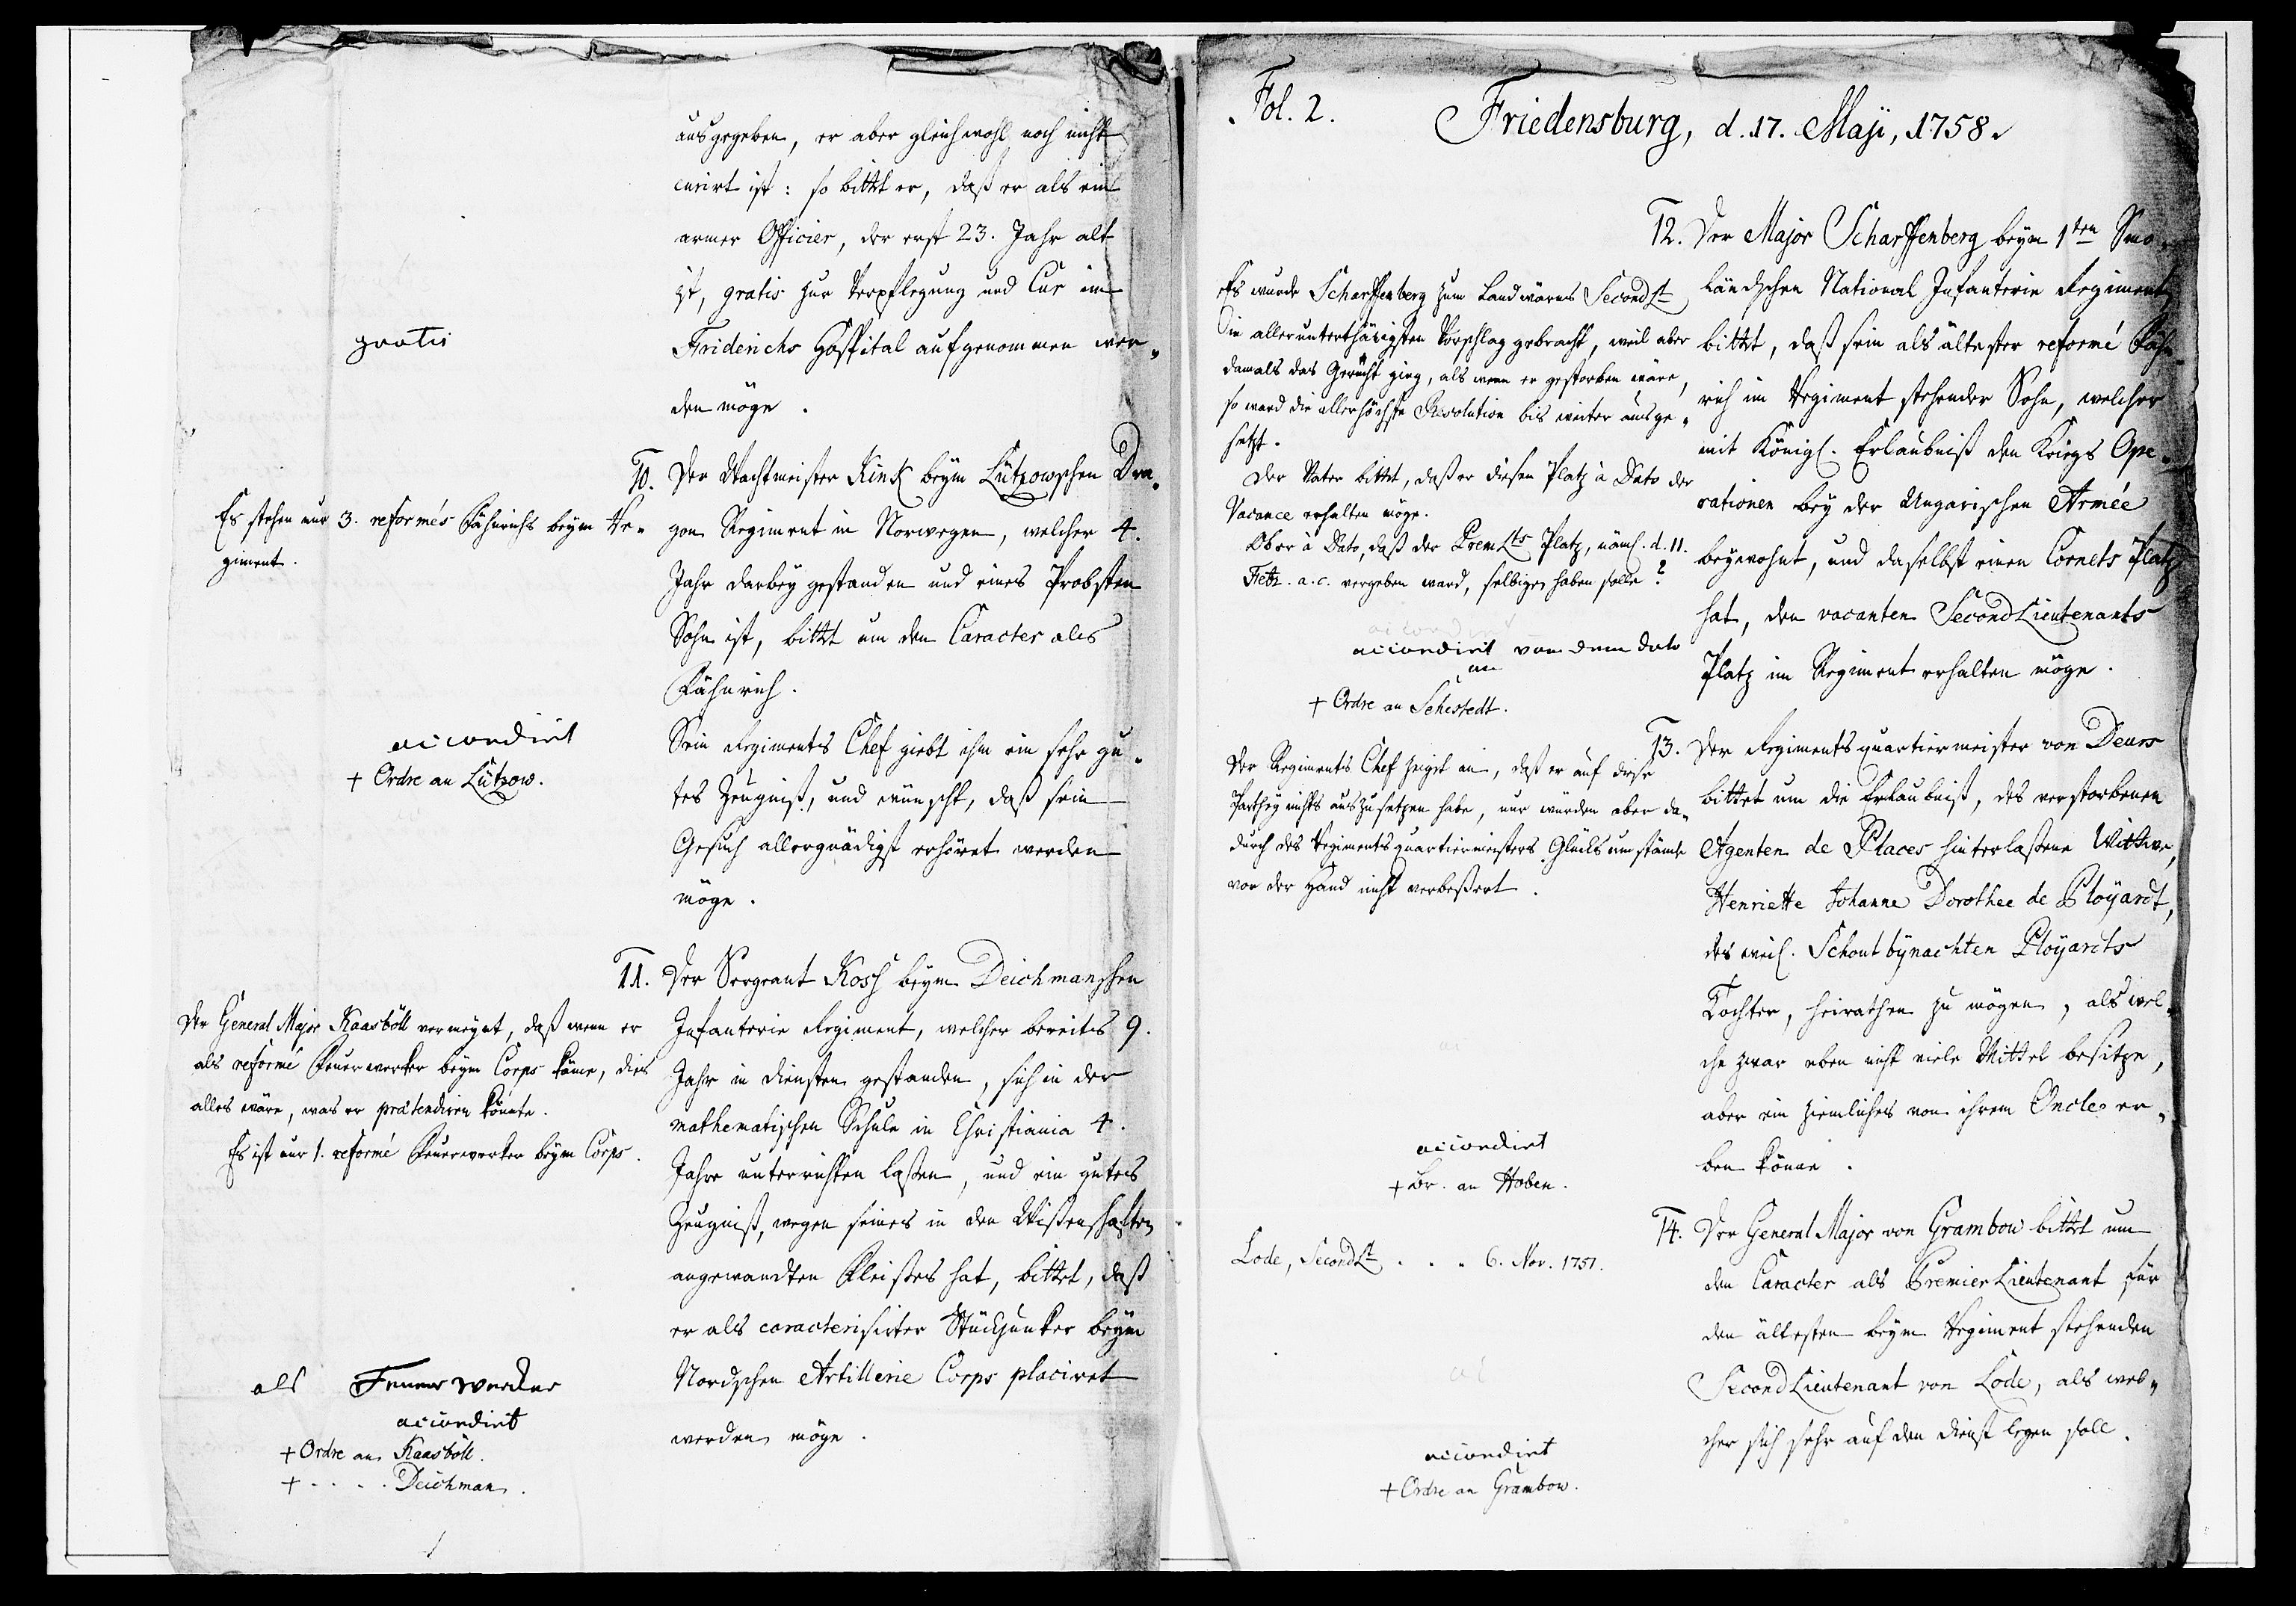 ausgegeben, er aber gleichwohl noch nicht
curirt ist: so bittet er, daß er als ein
armer Officier, der erst 23. Jahr alt
ist, gratis zur Verpflegung und Cur im
Friderichs Hospital aufgenommen wer„
den möge.
gratis
10. Der Wachtmeister Rink beym Lützowschen Dra„
gon Regiment in Norwegen, welcher 4.
Jahr darbey gestanden und eines Probsten
Sohn ist, bittet um den Caracter als
Fähnrich.
Sein Regiments Chef giebt ihm ein sehr gu„
tes Zeugniß, und wünscht, daß sein
Gesuch allergnädigst erhöret werden
möge.
Es stehen nur 3. reformés Fähnrichs beym Re„
giment.
accordirt
+ Ordre an Lützow.
11. Der Sergeant Koss beym Deichmanschen
Infanterie Regiment, welcher bereits 9.
Jahr in Diensten gestanden, sich in der
mathematischen Schule in Christiania 4.
Jahre unterrichten laßen, und ein gutes
Zeugniß, wegen seines in den Wißenschaften
angewandten Fleißes hat, bittet, daß
er als caracterisirter Stückjunker beym
Nordschen Artillerie Corps placiret
werden möge.
Der General Major Kaasböll vermeynt, daß wenn er
als reformé Feuerwerker beym Corps käme, dies
alles wäre, was er prætendiren könnte.
Es ist nur 1. reformé Feuerwerker beym Corps.
als Feuerwercker
accordirt
+ Ordre an Kaasböll.
+ . . . . Deichman.
Fol. 2. Friedensburg, d. 17. Maji, 1758.
12. Der Major Scharffenberg beym 1ten Smo„
ländschen National Infanterie Regiment
bittet, daß sein als ältester reformé Fähn„
rich im Regiment stehender Sohn, welcher
mit Königl. Erlaubniß den Kriegs Ope„
rationen bey der Ungarischen Armée
beywohnt, und daselbst einen Cornets Platz
hat, den vacanten SecondLieutenants
Platz im Regiment erhalten möge.
Es wurde Scharffenberg zum Landwärns SecondLt
in allerunterthänigsten Vorschlag gebracht, weil aber
damals das Gerücht ging, als wenn er gestorben wäre,
so ward die allerhöchste Resolution bis weiter ausge„
setzt.
Der Vater bittet, daß er diesen Platz à Dato der
Vacance erhalten möge.
Ob er à Dato, daß der PremLts Platz, näml. d. 11.
Febr. a. c. vergeben ward, selbigen haben solle?
accordirt von dem dato
an
+ Ordre an Sehestedt.
13. Der Regimentsquartiermeister von Deurs
bittet um die Erlaubniß, des verstorbenen
Agenten de Places hinterlaßene Wittwe,
Henriette Johanne Dorothee de Ployardt,
des weil. Schoutbynachten Ployardts
Tochter, heirathen zu mögen, als wel„
che zwar eben nicht viele Mittel besitze,
aber ein ziemliches von ihrem Oncle er„
ben könne.
Der Regiments Chef zeiget an, daß er auf diese
Parthey nichts auszusetzen habe, nur würden aber da„
durch des Regimentsquartiermeisters Glücksumstände
vor der Hand nicht verbeßert.
accordirt
+ Br. an Hoben.
14. Der General Major von Grambow bittet um
den Caracter als PremierLieutenant für
den ältesten beym Regiment stehenden
SecondLieutenant von Lode, als wel„
cher sich sehr auf den Dienst legen soll.
Lode, SecondLt . . . 6. Nov. 1751.
accordirt
+ Ordre an Grambow.